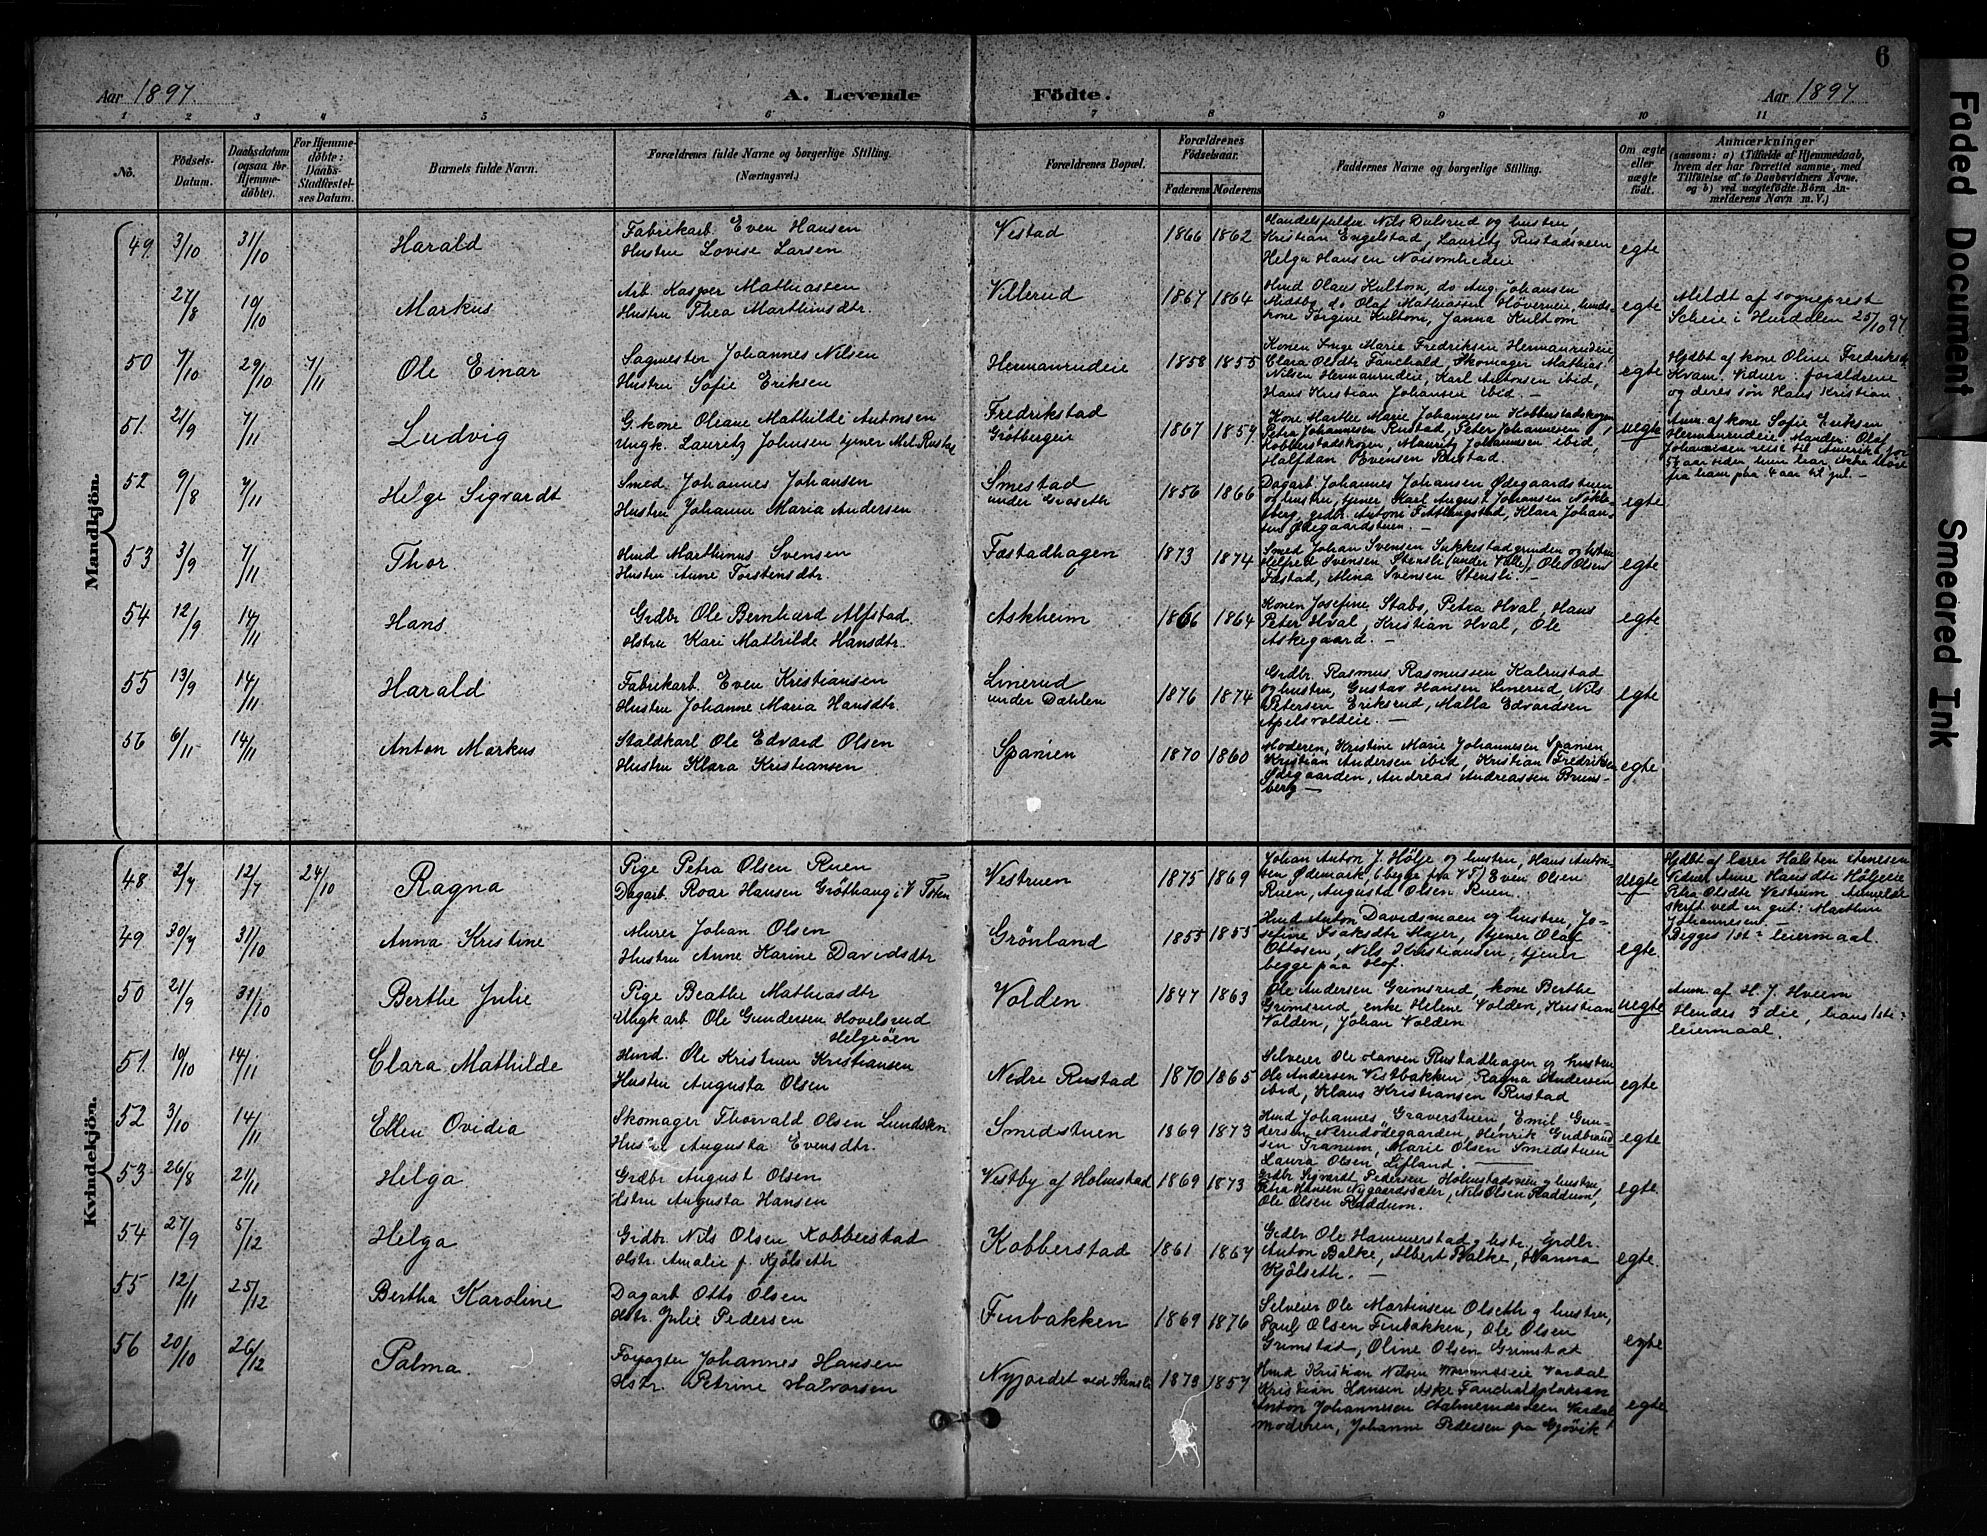 6
Aar 1897. A. Levende Födte. Aar 1897
1 2 3 4 5 6 7 8 9 10 11
No. Födsels-Datum. Daabsdatum (ogsaa for Hjemme-döbte). For Hjemme-döbte: Daabs-Stadfæstel-ses Datum. Barnets fulde Navn. Forældrenes fulde Navne og borgerlige Stilling. (Næringsvei.) Forældrenes Bopæl. Forældrenes Födselsaar. Faderens Moderens Faddernes Navne og borgerlige Stilling. Om ægte eller uægte födt. Anmærkninger (saasom: a) Tilfælde af Hjemmedaab, hvem der har forrettet samme, med Tilföielse af to Daabsvidners Navne. og b) ved uægtefödte Börn An-melderens Navn m. V.)
Mandkjön.
49 3/10 31/10 Harald Fabrikarb. Even Hansen Vestad 1866 1862 egte
Hustru Lovise Larsen
Kristian Engelstad, Lauritz Rustadsveen
Helga Hansen Nöisomheden
27/8 10/10 Markus Arb. Kasper Mathiassen Villerud 1867 1864 Hmd Olaus Kultom, do Aug. Johansen egte Meldt af sogneprest
Hustru Thea Marthinsdtr. Scheie i Hurdalen 25/10 97
Midtby, do Olaf Mathiassen
kone Jörgine Kultom, Janna Kultom
50 7/10 29/10 7/11 Ole Einar Sagmester Johannes Nilsen Hermanrudeie 1858 1855 Konen Inge Marie Fredriksen Hermanrudeie, egte Hjdbt af kone Oline Fredriksd.
Hustru Sofie Eriksen Clara Olsdtr Fauchald, Skomager Mathias Kvam. Vidner: forældrene
Nilsen Hermanrudeie, Karl Antonsen ibid, og deres sön Hans Kristian.
Hans Kristian Johansen ibid. —
51. 21/9 7/11 Ludvig G. kone Oliane Mathilde Antonsen Fredrikstad 1867 1859 Kone Marthe Marie Johannesen Kobberstadskogen uegte Anm. af kone Sofie Eriksen
Ungk. Lauritz Johnsen tjener Grötbergeie Petra Johannesen Rustad, Peter Johannesen Hermanrudeie. Olaf
Kobberstadskogen, Mauritz Johannesen ibid, Johannesen reist til Amerika for
Halfdan Evensen Rustad. 5½ aar siden, hun har ikke hört
fra ham paa 4 aar til jul. —
52 9/8 7/11 Helge Sigvardt Smed. Johannes Johansen Smestad 1856 1866 Dagarb. Johannes Johansen Ödegaardstuen egte
Hustru Johanne Maria Andersen under Gröseth og hustru, tjener Karl August Johansen Nökle-
berg, grdbr. Antone, Klara Johan-
sen Ödegaardstuen. —
53 3/9 7/11 Thor Hmd Marthinus Svensen Fastadhagen 1873 1874 Smed Johan Svensen Sukkestadgrinden og hstru egte
Hustru Anne Torstensdtr. Helfred Svensen Stensli (under Valle), Ole Olsen
Fæstad, Mina Svensen Stensli. —
54 12/9 14/11 Hans Grdbr Ole Bernhard Alfstad. Askheim 1866 1864 Konen Josefine Stabo, Petra Hval, Hans egte
Hstru Kari Mathilde Hansdtr. Peter Hval, Kristian Hval, Ole
Askegaard. —
55 13/9 14/11 Harald Fabrikarb. Even Kristiansen Linerud 1876 1874 Grdbr. Rasmus Rasmussen Kalrustad egte
Hustru Johanne Maria Hansdtr. under Dæhlen og hustru, Gustav Hansen Linerud, Nils
Petersen Eriksrud, Malla Edvardsen
Apelsvoldeie. —
56 6/11 14/11 Anton Markus Staldkarl Ole Edvard Olsen Spanien 1870 1860 Moderen, Kristine Marie Johannesen Spanien egte
Hustru Klara Kristiansen Kristian Andersen ibid, Kristian Fredriksen
Ödegaarden, Andreas Andreassen Bruns-
berg —
Kvindekjön.
48 2/7 12/7 24/10 Ragna Pige Petra Olsen Ruen Vestruen 1875 1869 Johan Anton J. Hölje og hustru, Hans Anton- uegte Hjdbt af lærer Halsten Arnesen
Dagarb. Roar Hansen Gröthaug i V Toten sen Ödemark, (begge fra V.T.) Even Olsen Vidner Anne Hansdtr Höljeeie
Ruen, Augusta Olsen Ruen. Petra Olsdtr Vestrum, Anmeldt
skrift ved en gut: Marthin
Johannesen
Begges 1st leiermaal.
49 30/7 31/10 Anna Kristine Murer Johan Olsen Grönland 1855 1855 Hmd Anton Davidsmoen og hustru, Jo- egte.
Hustru Anne Karine Davidsdtr sefine Isaksdtr Majer, tjener Olaf
Ottosen, Nils Kristiansen, tjener
begge paa Hof.
50 21/9 31/10 Berthe Julie Pige Beathe Mathiasdtr Volden 1847 1863 Ole Andersen Grimsrud, kone Berthe uegte Anm. af H. J. Hveem
Ungk arb Ole Gundersen Hovelsrud Grimsrud, enke Helene Volden, Kristian Hendes 3die, hans 1ste
Helgeöen Volden, Johan Volden leiermaal.
51. 10/10 14/11 Clara Mathilde Hmd. Ole Kristian Kristiansen Nedre Rustad 1870 1865 Selveier Ole Hansen Rustadhagen og hustru egte
Hustru Augusta Olsen Ole Andersen Vestbakken, Ragna Andersen
ibid, Klaus Kristiansen Rustad
52 3/10 14/11 Ellen Ovidia Skomager Thorvald Olsen Smedstuen 1869 1873 Hmd Johannes Graverstuen, Emil Gun- egte
Augusta Evensdtr. dersen Nerudödegaarden, Henrik Gudbrand-
sen Tranum, Marie Olsen Smedstuen
Laura Olsen Lifland. —
53 26/8 21/11 Helga Grdbr August Olsen Vestby af Holmstad 1869 1873 Grdbr Sigvardt Pedersen Holmstadveen og hustru, egte.
Hstru Augusta Hansen Petra Hansen Nygaardssæter, Nils Olsen Raddum,
Ole Olsen Raddum.
54 27/9 5/12 Helga Grdbr. Nils Olsen Kobberstad Kobberstad 1861 1867 Grdbr Ole Hammerstad og hstr., Grdbr. egte.
Hstr. Amalie f. Kjölseth Anton Balke, Albert Balke, Hanna
Kjölseth. —
55 12/11 25/12 Bertha Karoline Dagarb Otto Olsen Finbakken 1869 1876 Selveier Ole Martinsen Olseth og hustru, egte
Hstr. Julie Pedersen Paul Olsen Finbakken, Ole Olsen
Grimstad, Oline Olsen Grimstad
56 20/10 26/12 Palma Forpagter Johannes Hansen Nyjordet ved Stensli 1873 1857 Hmd Kristian Nilsen egte
Hstr. Petrine Halvorsen Kristian Hansen Aske Fauchaldplassen
Anton Johannesen
Moderen, Johanne Pedersen pa Gjövik
Faded Document
Smeared Ink